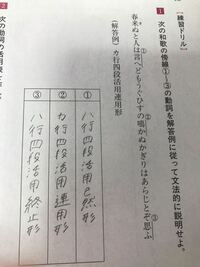 【練習ドリル】
1 次の和歌の傍線①〜③の動詞を解答例に従って文法的に説明せよ。
春来ぬと人は言①へどもうぐひすの鳴②かぬかぎりはあらじとぞ思③ふ
(解答例) カ行四段活用連用形
① ハ行四段活用已然形
② カ行四段活用連用形
③ ハ行四段活用終止形
2 次の動詞の活用表